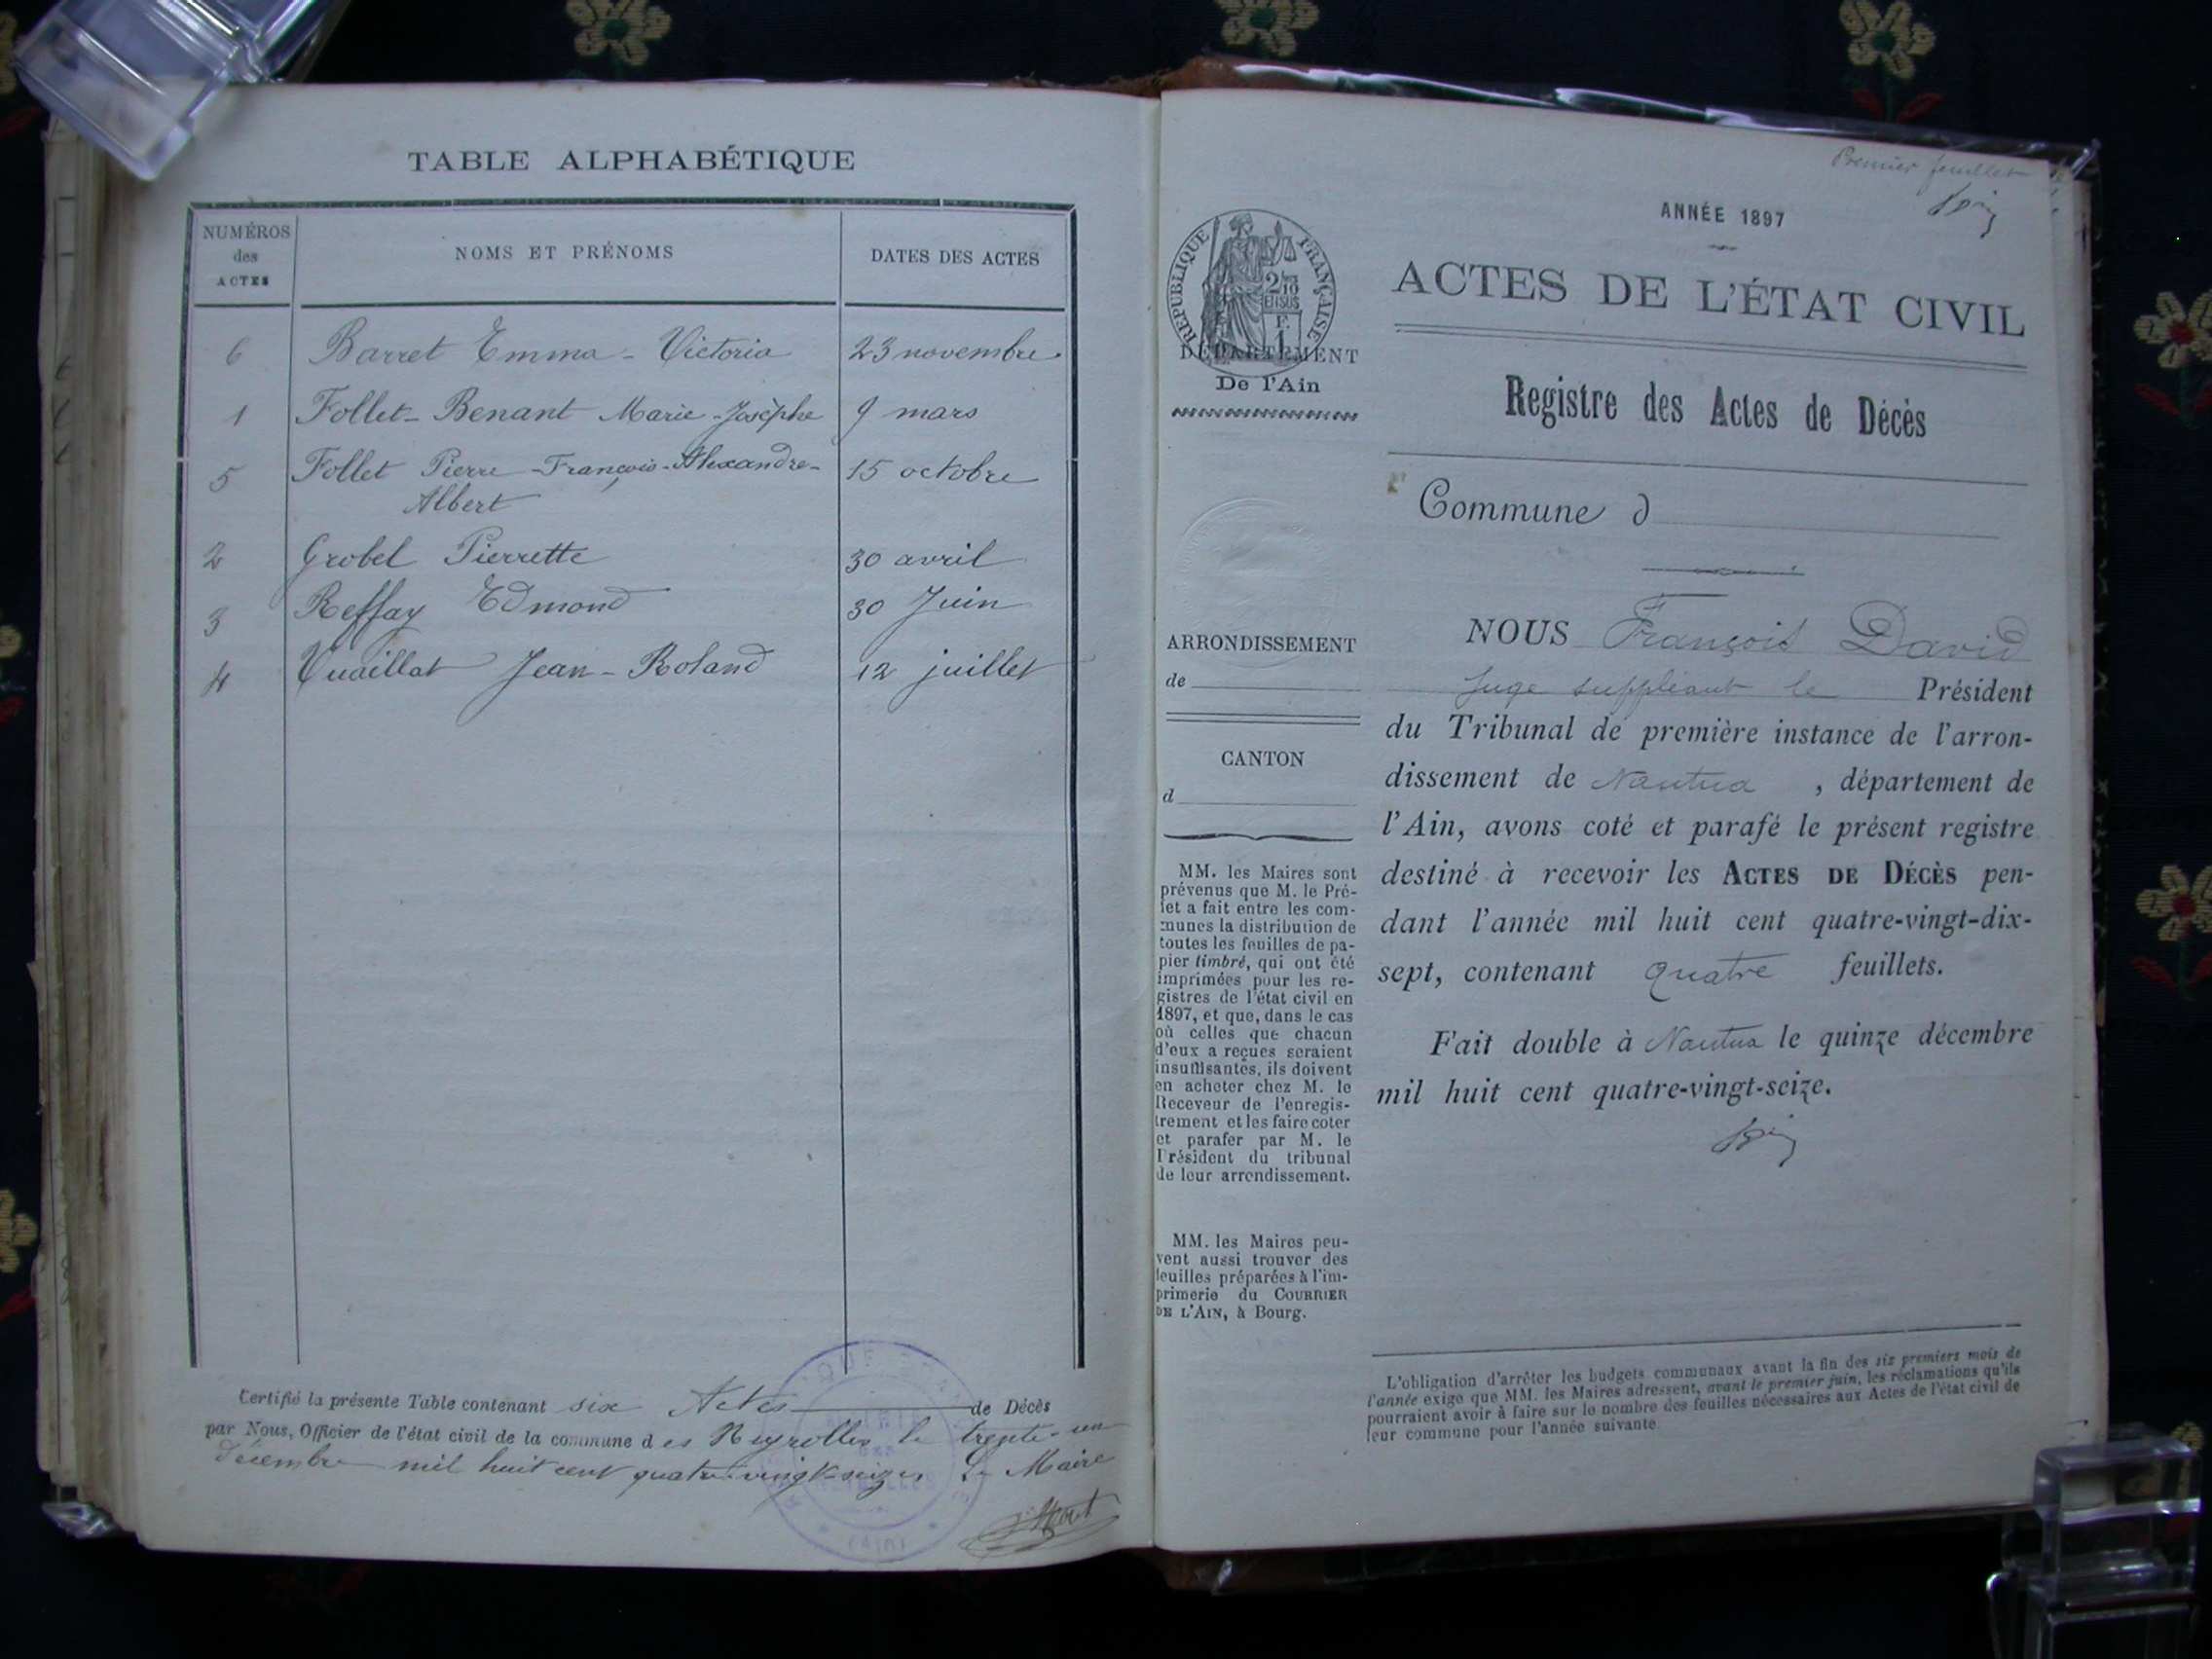 TABLE ALPHABÉTIQUE
NUMÉROS des ACTES
NOMS ET PRÉNOMS
DATES DES ACTES
6 Barret Emma - Victoria 23 novembre
1 Follet - Benant Marie - Josèphe 9 mars
5 Follet Pierre - François - Alexandre - 15 octobre
Albert
2 Grobel Pierrette 30 avril
3 Reffay Edmond 30 Juin
4 Vuaillat Jean - Roland 12 juillet
Certifié la présente Table contenant six Actes de Décès
par Nous, Officier de l'état civil de la commune des Neyrolles le trente-un
décembre mil huit cent quatre-vingt-seize. Le Maire
Premier feuillet
ANNÉE 1897
ACTES DE L'ÉTAT CIVIL
Registre des Actes de Décès
Commune d
RÉPUBLIQUE FRANÇAISE
2/10 EN SUS
F. 1
DÉPARTEMENT
De l'Ain
ARRONDISSEMENT
de
CANTON
d
MM. les Maires sont
prévenus que M. le Pré-
fet a fait entre les com-
munes la distribution de
toutes les feuilles de pa-
pier timbré, qui ont été
imprimées pour les re-
gistres de l'état civil en
1897, et que, dans le cas
où celles que chacun
d'eux a reçues seraient
insuffisantes, ils doivent
en acheter chez M. le
Receveur de l'enregis-
trement et les faire coter
et parafer par M. le
Président du tribunal
de leur arrondissement.
MM. les Maires peu-
vent aussi trouver des
feuilles préparées à l'im-
primerie du COURRIER
DE L'AIN, à Bourg.
NOUS François David
Juge suppléant le Président
du Tribunal de première instance de l'arron-
dissement de Nantua , département de
l'Ain, avons coté et parafé le présent registre
destiné à recevoir les ACTES DE DÉCÈS pen-
dant l'année mil huit cent quatre-vingt-dix-
sept, contenant quatre feuillets.
Fait double à Nantua le quinze décembre
mil huit cent quatre-vingt-seize.
L'obligation d'arrêter les budgets communaux avant la fin des six premiers mois de
l'année exige que MM. les Maires adressent, avant le premier juin, les réclamations qu'ils
pourraient avoir à faire sur le nombre des feuilles nécessaires aux Actes de l'état civil de
leur commune pour l'année suivante.